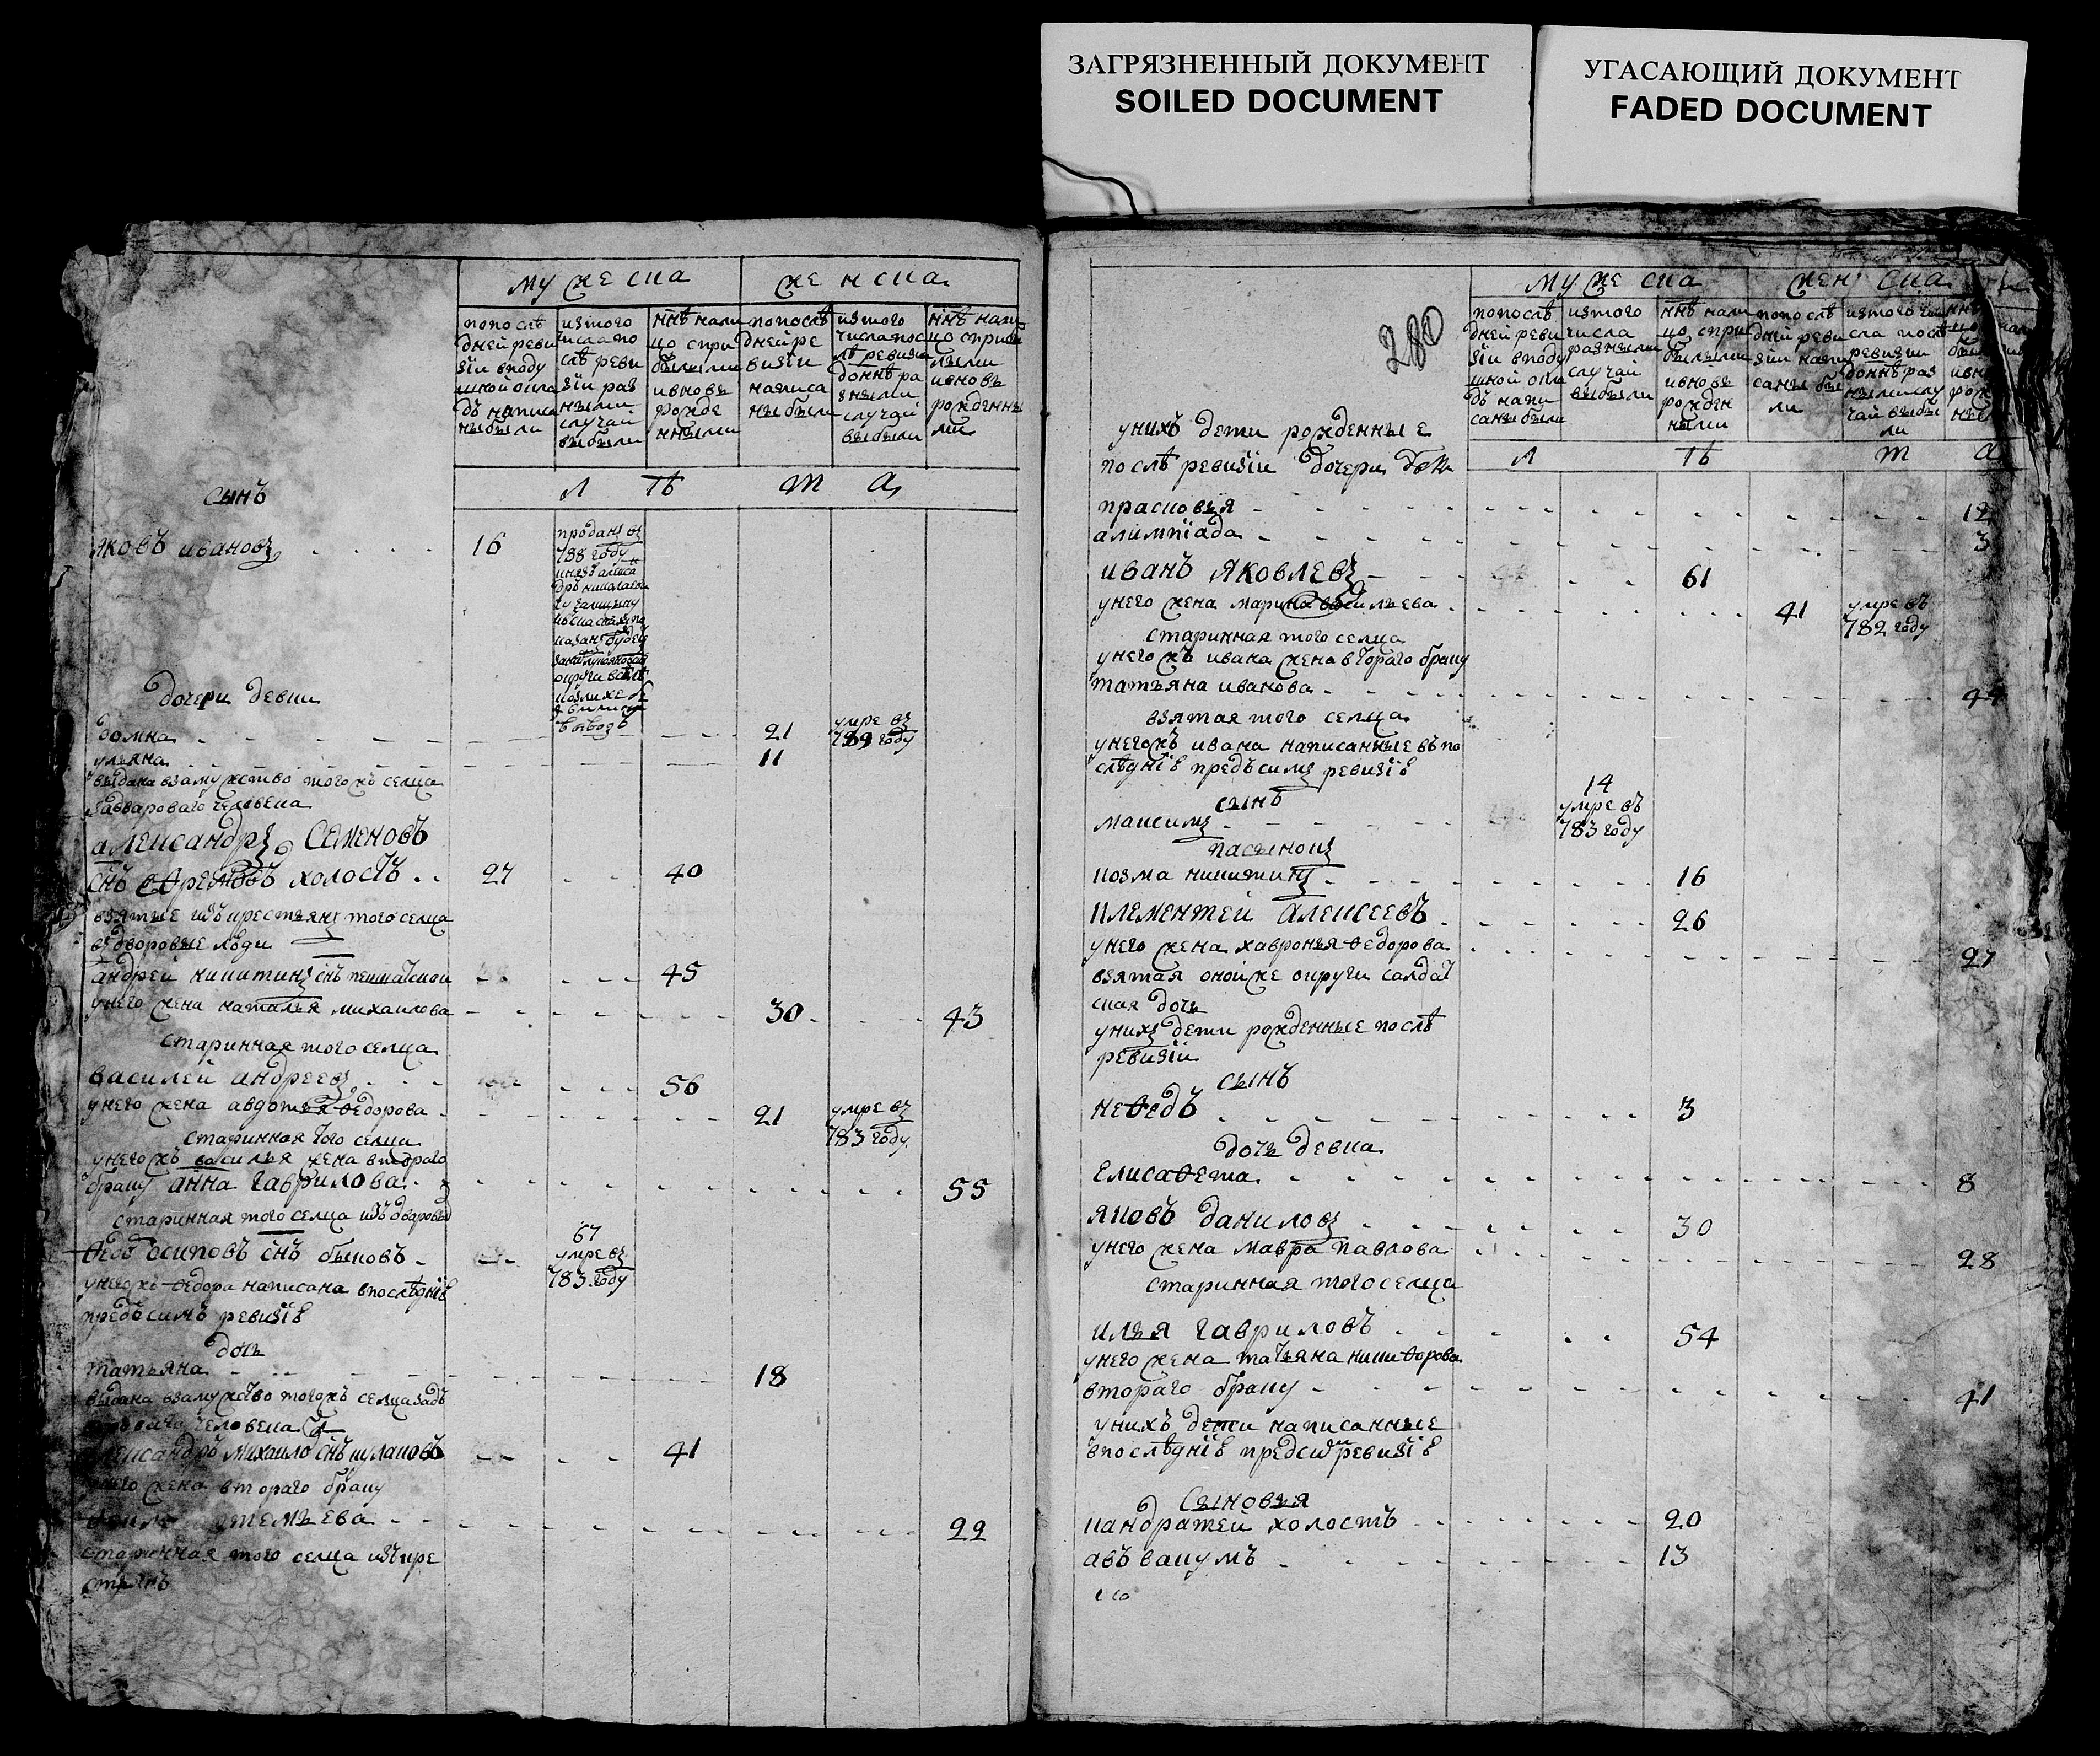 ЗАГРЯЗНЕННЫЙ ДОКУМЕНТ
SOILED DOCUMENT
УГАСАЮЩИЙ ДОКУМЕНТ
FADED DOCUMENT
мужеска
женска
попослѣ
дней реви
зіи вподу
шной окла
дъ написа
ны были
изтого
числа по
слѣ реви
зіи раз
ными
случаи
выбыли
ннѣ нали
цо спри
былыми
ивновь
рожде
нными
попослѣ
дней ре
визіи
написа
ны были
изтого
числа пос
лѣ ревизи
доннѣ ра
зными
случаи
выбыли
ннѣ нали
цо спри
лыми
ивновь
рожденны
ми
л ѣ т а
сынъ
яковъ ивановъ 16
проданъ въ
788 году
дочери девки
домна 21 умре въ
789 году
ульяна 11
выдана взамужство тогожъ селца
задвароваго человека
александръ семеновъ
снъ ефремовъ холостъ 27 40
взятые изъ крестьянъ того селца
въ дворовые люди
андрей никитинъ снъ 45
унего жена наталья михаилова 30 43
старинная того селца
василей андреевъ 56
унего жена авдотья федорова 21 умре въ
783 году
старинная того селца
унегожъ василья жена втораго
браку анна гаврилова 55
старинная того селца изъ дваровы
федо осиповъ снъ быковъ 67
умре въ
783 году
унегожъ федора написана впослѣдніе
предъсимъ ревизіе
дочь
татьяна 18
выдана взамужство тогожъ селца задъ
человека
александръ михаило снъ кулаковъ 41
унего жена втораго браку
артемьева 22
старинная того селца изъ кре
стьянъ
280
мужеска
женска
попослѣ
дней реви
зіи вподу
шной окла
дъ напи
саны были
изтого
числа
разными
случаи
выбыли
ннѣ нали
цо спри
былыми
ивновь
рожден
ными
попослѣ
дней реви
зіи напи
саны бы
ли
изтого чи
сла послѣ
ревизіи
доннѣ раз
ными слу
чаи выбы
ли
л ѣ т а
унихъ дети рожденные
послѣ ревизіи дочери девки
прасковья 12
алимпіада 3
иванъ яковлевъ 61
унего жена марина васильева 41 умре въ
782 году
старинная того селца
унегожъ ивана жена втораго браку
татьяна иванова 44
взятая того селца
унегожъ ивана написанные въ по
слѣдніе предъсимъ ревизіе
сынъ 14
максимъ умре въ
783 году
пасынокъ
козма никитинъ 16
клементей алексеевъ 26
унего жена хавронья федорова 27
взятая оной же округи салдат
ская дочь
унихъ дети рожденные послѣ
ревизіи
сынъ
нефедъ 3
дочь девка
елисафета 8
яковъ даниловъ 30
унего жена мавра павлова 28
старинная того селца
илья гавриловъ 54
унего жена татьяна никифорова
втораго браку 41
унихъ дети написанные
впослѣдніе предсимъ ревизіе
сыновья
кандратей холостъ 20
авъвакумъ 13